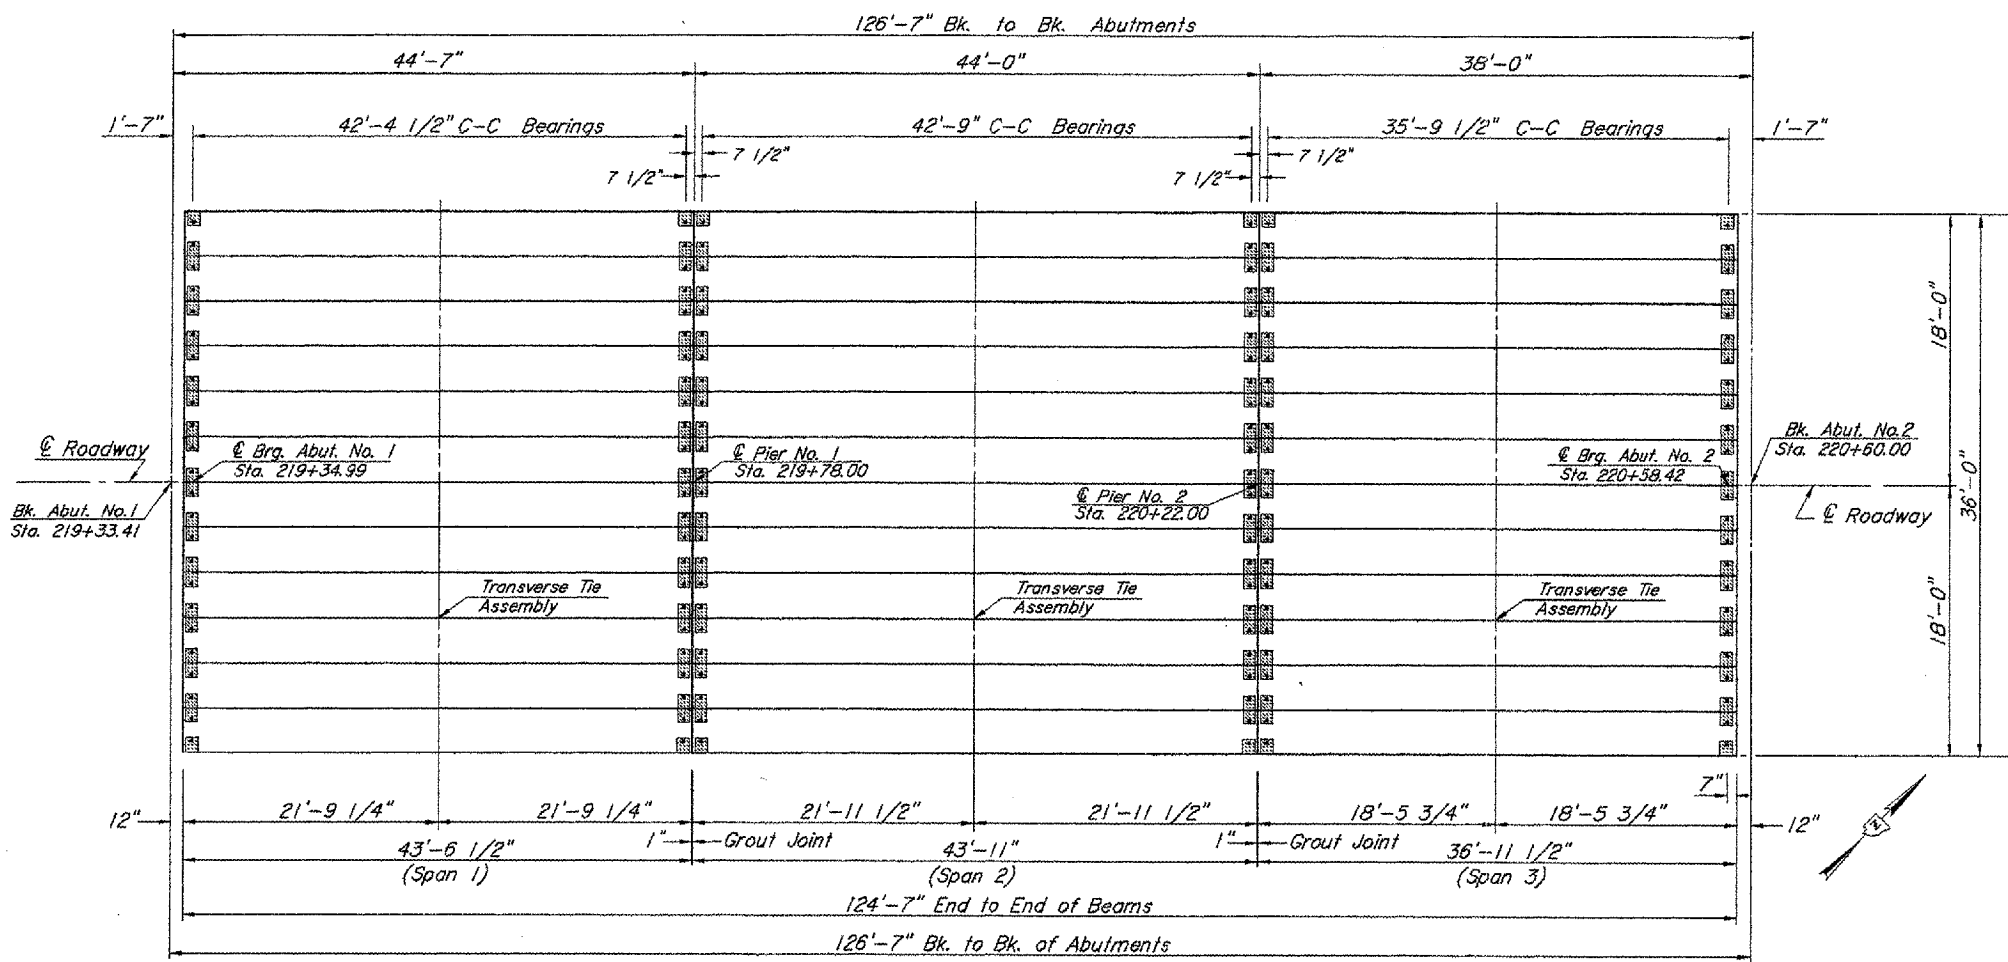 126'-7" Bk. to Bk. Abutments
44'-7"
44'-0"
38'-0"
1'-7"
42'-4 1/2" C-C Bearings
42'-9" C-C Bearings
35'-9 1/2" C-C Bearings
1'-7"
7 1/2"
7 1/2"
7 1/2"
7 1/2"
18'-0"
36'-0"
18'-0"
℄ Roadway
℄ Brg. Abut. No. 1
Sta. 219+34.99
℄ Pier No. 1
Sta. 219+78.00
℄ Pier No. 2
Sta. 220+22.00
℄ Brg. Abut. No. 2
Sta. 220+58.42
Bk. Abut. No.2
Sta. 220+60.00
Bk. Abut. No.1
Sta. 219+33.41
℄ Roadway
Transverse Tie
Assembly
Transverse Tie
Assembly
Transverse Tie
Assembly
7"
12"
21'-9 1/4"
21'-9 1/4"
21'-11 1/2"
21'-11 1/2"
18'-5 3/4"
18'-5 3/4"
12"
1"
Grout Joint
1"
Grout Joint
43'-6 1/2"
(Span 1)
43'-11"
(Span 2)
36'-11 1/2"
(Span 3)
N
124'-7" End to End of Beams
126'-7" Bk. to Bk. of Abutments